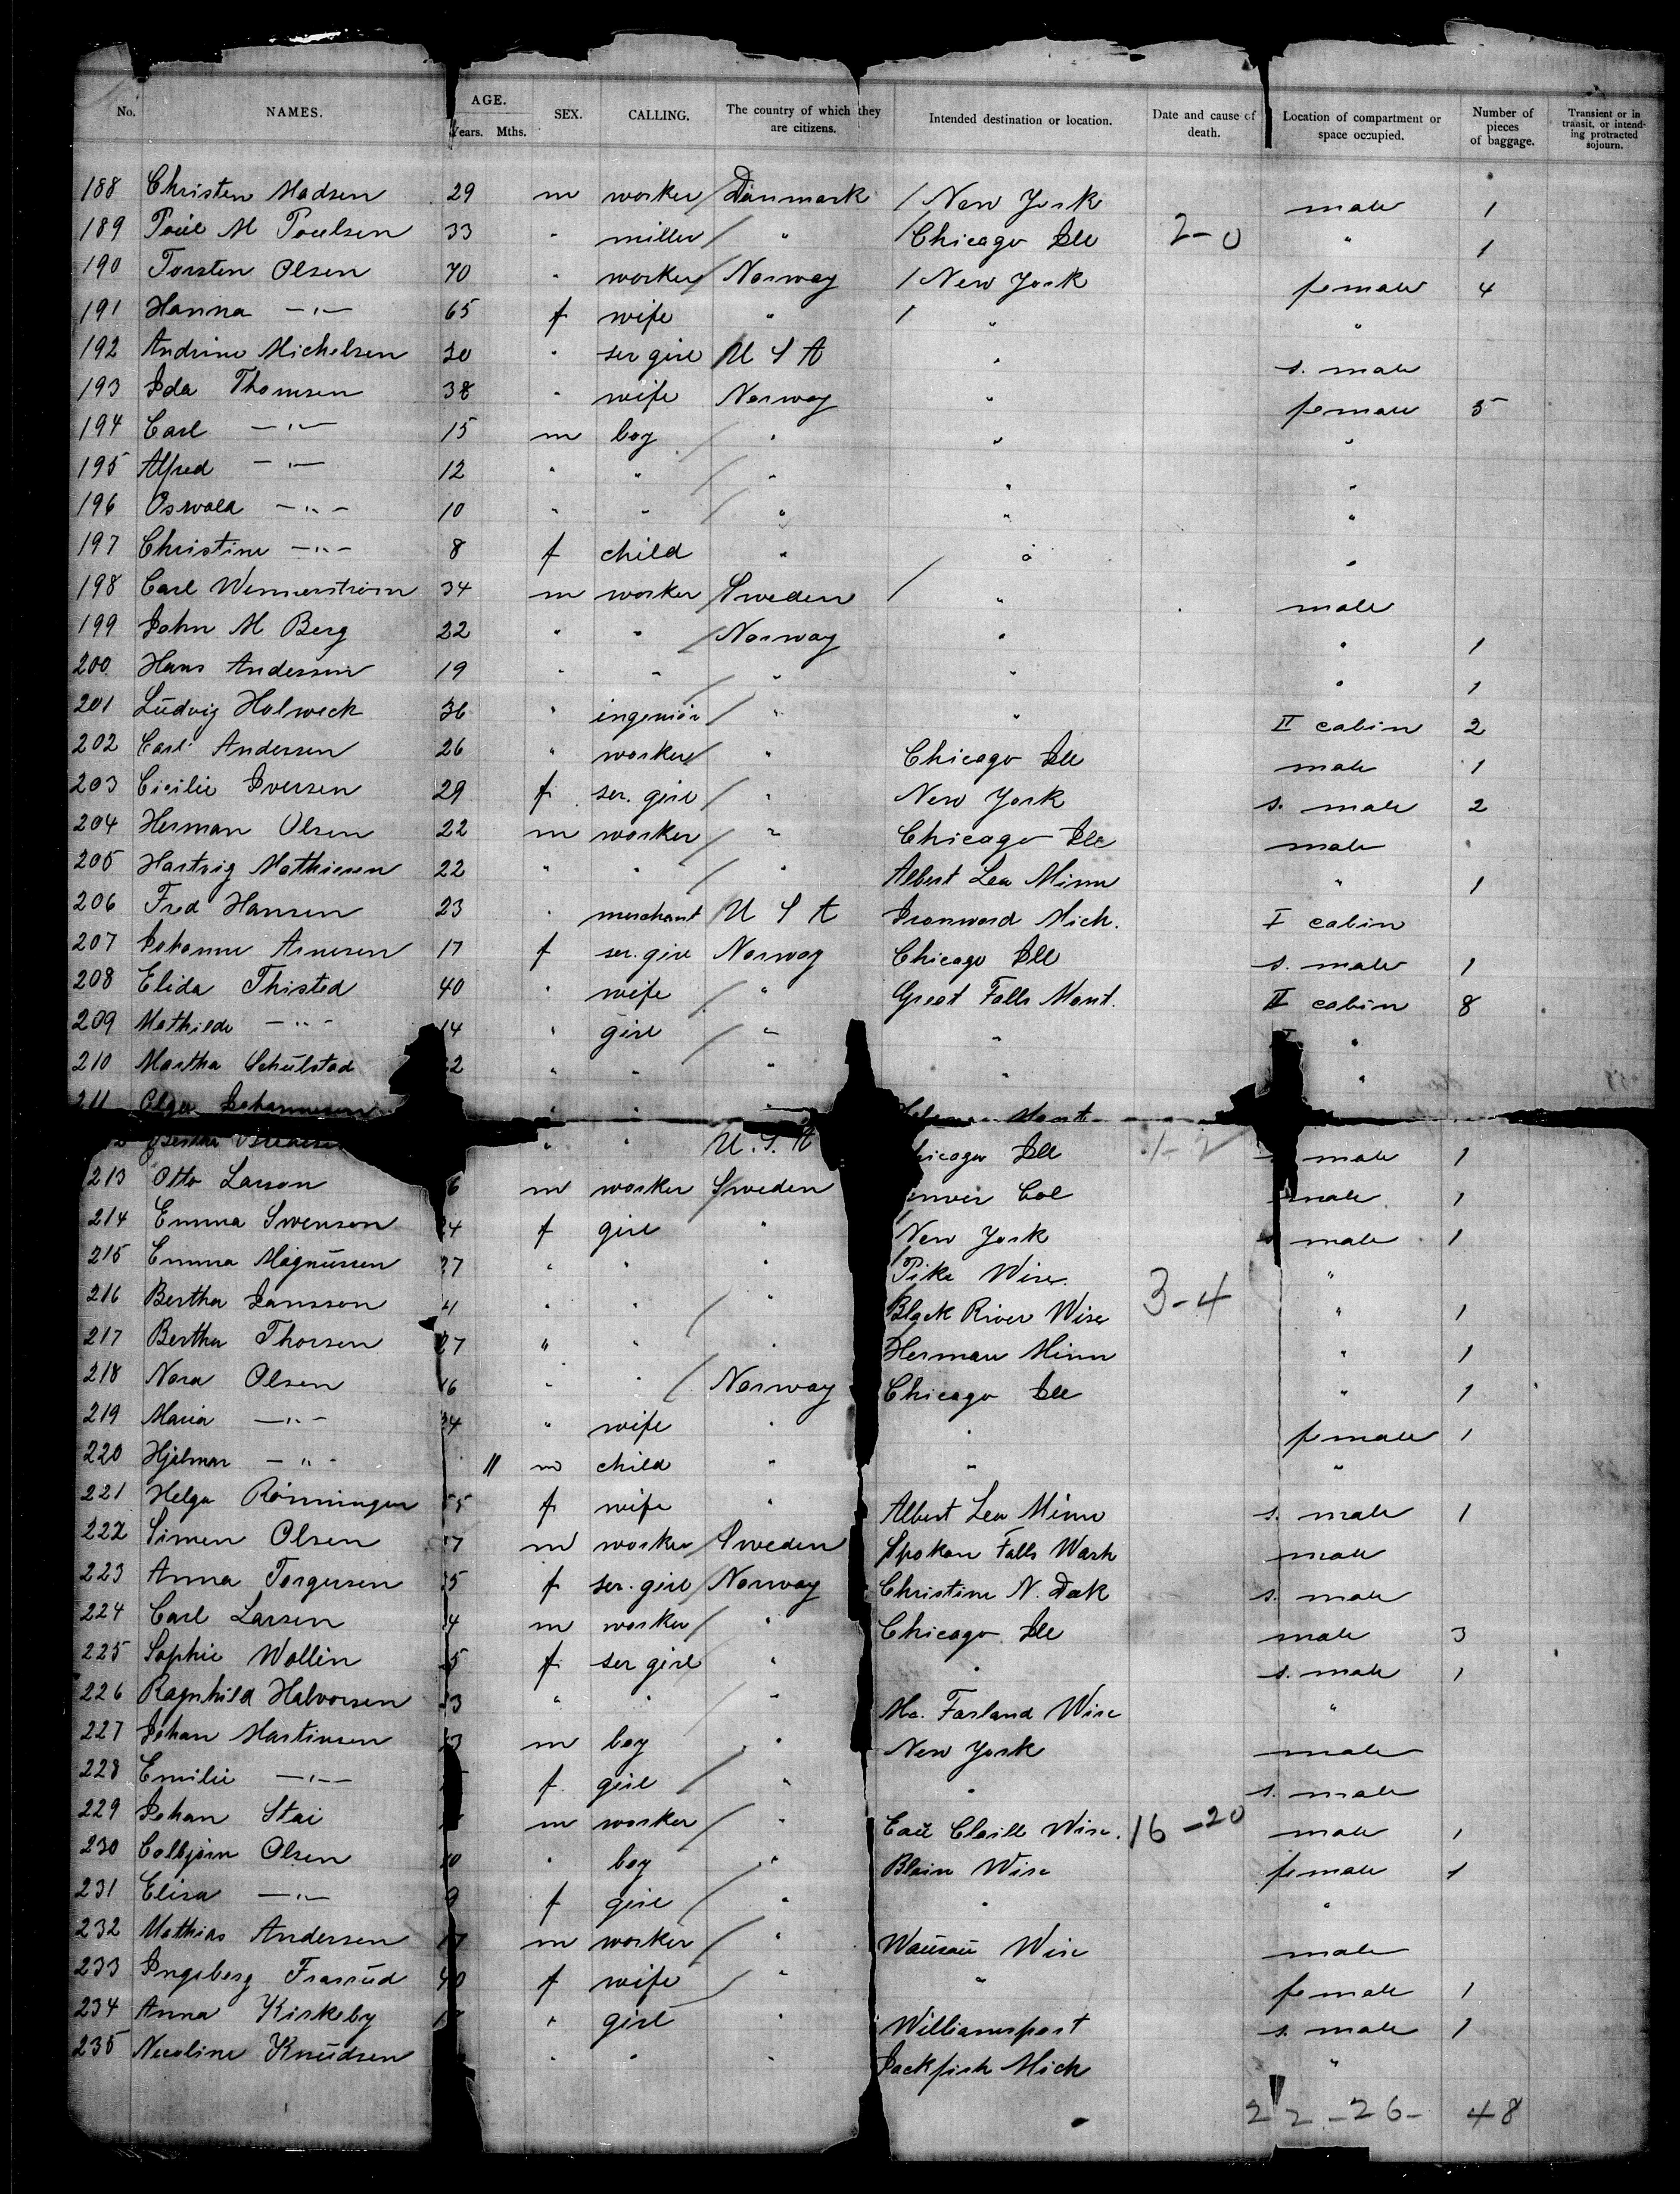 No. NAMES. AGE. Years. Mths. SEX. CALLING. The country of which they are citizens. Intended destination or location. Date and cause of death. Location of compartment or space occupied. Number of pieces of baggage. Transient or in transit, or intending protracted sojourn.
188 Christen Madsen 29 m worker Danmark New York male 1
189 Poul M Poulsen 33 " miller " Chicago Ill 2-0 " 1
190 Torsten Olsen 70 " worker Norway New York female 4
191 Hanna —"— 65 f wife " " "
192 Andrine Michelsen 30 " ser girl U S A " s. male
193 Ida Thomsen 38 " wife Norway " female 5
194 Carl —"— 15 m boy " " "
195 Alfred —"— 12 " " " " "
196 Oswald —"— 10 " " " " "
197 Christine —"— 8 f child " " "
198 Carl Wennerström 34 m worker Sweden " male
199 John M Berg 22 " " Norway " " 1
200 Hans Andersen 19 " " " " " 1
201 Ludvig Holweck 36 " ingeniör " " II cabin 2
202 Carl Andersen 26 " worker " Chicago Ill male 1
203 Cicilie Iversen 29 f ser. girl " New York s. male 2
204 Herman Olsen 22 m worker " Chicago Ill male "
205 Hartvig Mathiesen 22 " " " Albert Lea Minn " 1
206 Fred Hansen 23 " merchant U S A Ironword Mich. I cabin
207 Johanne Arnesen 17 f ser. girl Norway Chicago Ill s. male 1
208 Elida Thisted 40 " wife " Great Falls Mont. II cabin 8
209 Mathilde —"— 14 " girl " " "
210 Martha Schulstad 2 " " " " "
211 Olga Johannesen " " " Mont
Bertha " " U.S.A. Chicago Ill 1-2 male 1
213 Otto Larson 6 m worker Sweden Denver Col male 1
214 Emma Swenson 24 f girl " New York male 1
215 Emma Magnussen 27 " " " Pike Wisc. "
216 Bertha Jansson " " " Black River Wisc 3-4 " 1
217 Bertha Thorsen 27 " " " Herman Minn " 1
218 Nora Olsen 16 " " Norway Chicago Ill " 1
219 Maria —"— 34 " wife " " female 1
220 Hjalmar —"— 11 m child " " "
221 Helga Rönningen 55 f wife " Albert Lea Minn s. male 1
222 Simen Olsen 7 m worker Sweden Spokan Falls Wash male
223 Anna Torgersen 5 f ser. girl Norway Christine N. Dak s. male
224 Carl Larsen 4 m worker " Chicago Ill male 3
225 Sophie Wollin 5 f ser girl " " s. male 1
226 Ragnhild Halvorsen 3 " " " Mc. Farland Wisc "
227 Johan Martinsen 3 m boy " New York male
228 Emilie —"— f girl " " s. male
229 Johan Stai m worker " Eau Claille Wisc. 16-20 male 1
230 Colbjørn Olsen 10 " boy " Blain Wisc female 1
231 Elisa —"— 9 f girl " " "
232 Mathias Andersen 17 m worker " Wausau Wisc male
233 Ingeborg Frasrud 40 f wife " " female 1
234 Anna Kirkeby " girl " Williamsport s. male 1
235 Nicoline Knudsen " " " Jackfish Mich "
22-26- 48